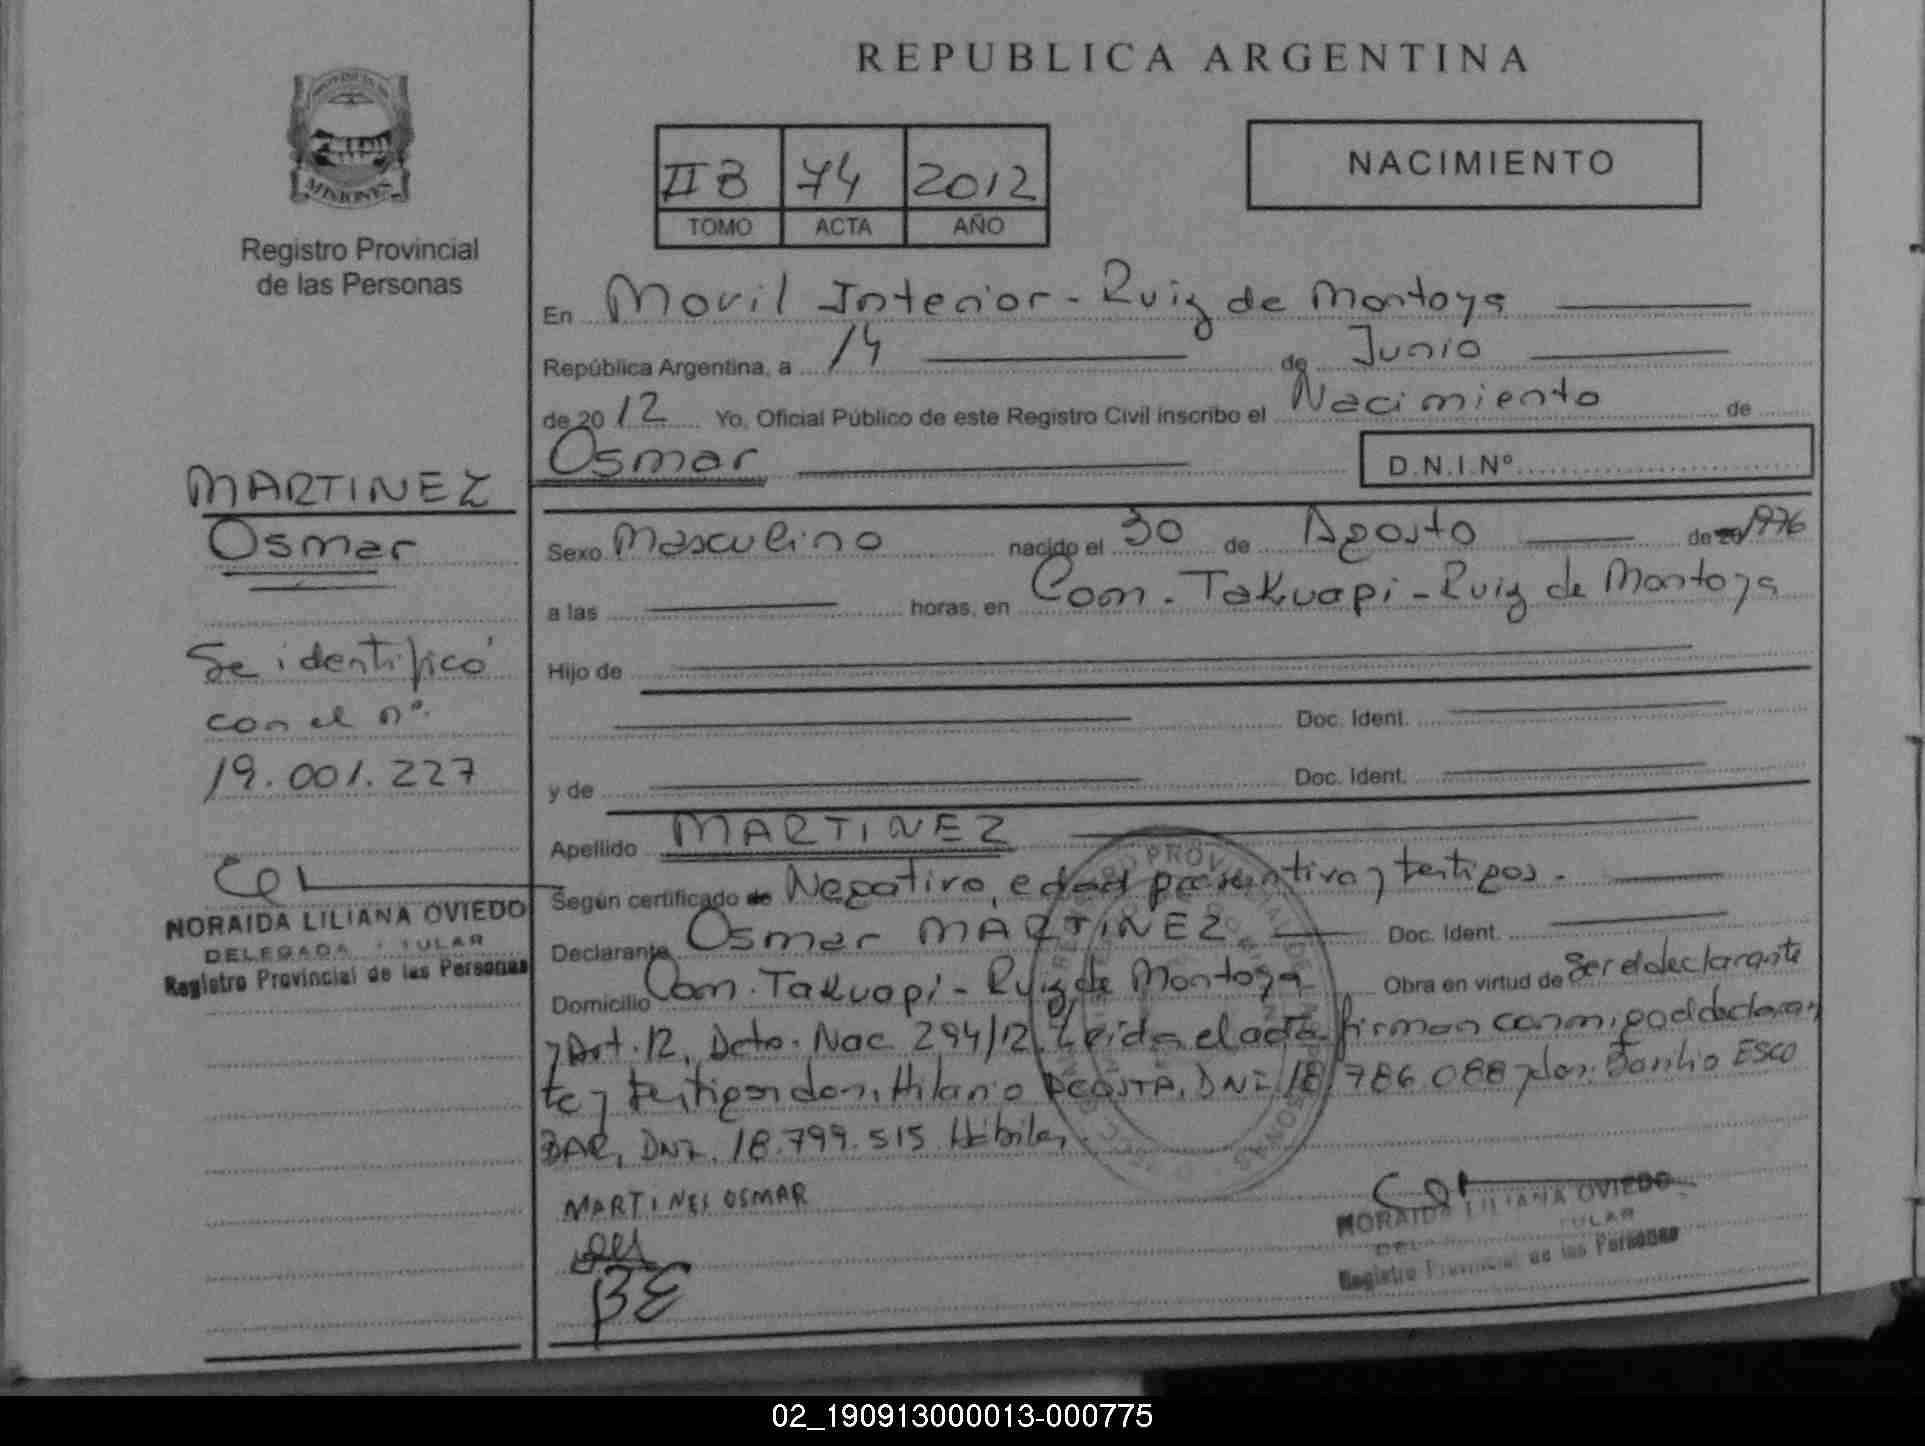 REPUBLICA ARGENTINA
MISIONES
Registro Provincial
de las Personas
II B 74 2012
TOMO ACTA AÑO
NACIMIENTO
En Movil Interior - Ruiz de Montoya
República Argentina, a 14 de Junio
de 2012 Yo, Oficial Público de este Registro Civil inscribo el Nacimiento de
Osmar D.N.I.Nº
MARTINEZ
Osmar
Se identificó
con el nº.
19.001.227
NORAIDA LILIANA OVIEDO
DELEGADA TITULAR
Registro Provincial de las Personas
Sexo Masculino nacido el 30 de Agosto de 20 1976
a las horas, en Com. Takuapi - Ruiz de Montoya
Hijo de
Doc. Ident.
y de Doc. Ident.
Apellido MARTINEZ
Según certificado de Negativo, edad presuntiva y testigos.
Declarante Osmar MARTINEZ Doc. Ident.
Domicilio Com. Takuapi - Ruiz de Montoya Obra en virtud de Ser el declarante
y Art. 12, Dcto. Nac. 294/12. Leida el acta firman conmigo el declaran
te y testigos: don. Hilario ACOSTA, DNI. 18.786.088 y don. Basilio ESCO
BAR, DNI. 18.799.515 Hábiles.
MARTINES OSMAR
BE
NORAIDA LILIANA OVIEDO
TULAR
Registro Provincial de las Personas
02_190913000013-000775